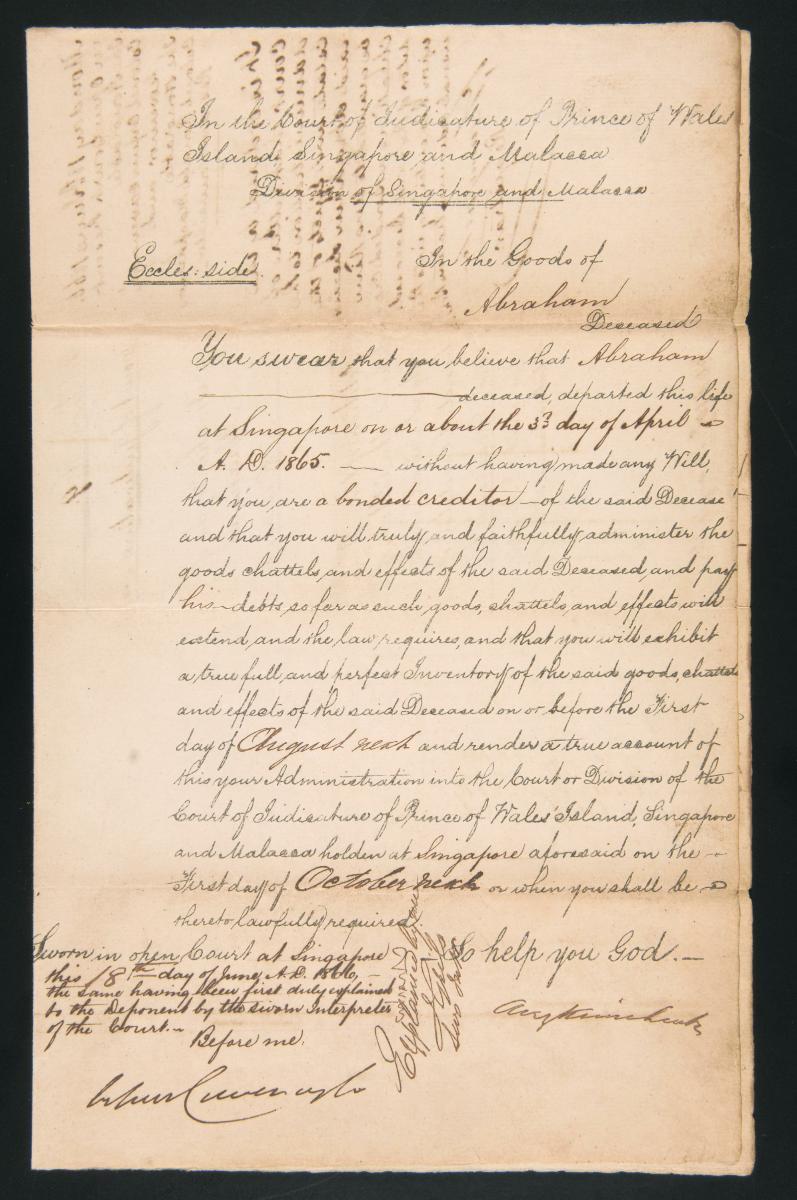 In the Court of Judicature of Prince of Wales
Island Singapore and Malacca
Division of Singapore and Malacca
Eccles: side.
In the Goods of
Abraham
Deceased
You swear that you believe that Abraham
deceased, departed this life
at Singapore on or about the 3d day of April
A. D. 1865. — without having made any Will,
that you are a bonded creditor — of the said Decease
and that you will truly and faithfully administer the
goods chattels, and effects of the said Deceased, and pay
his — debts, so far as such, goods, chattels, and effects will
extend, and the law, requires, and that you will exhibit
a true full, and perfect Inventory of the said goods, chattels
and effects of the said Deceased on or before the First
day of August next and render a true account of
this your Administration into the Court or Division of the
Court of Judicature of Prince of Wales' Island, Singapore
and Malacca holden at Singapore aforesaid on the —
First day of October next or when you shall be
thereto lawfully required.
So help you God. —
Sworn in open Court at Singapore
this 18th day of June, A.D. 1866, —
the same having been first duly explained
to the Deponent by the sworn Interpreter
of the Court. —
Before me.
Explained by me